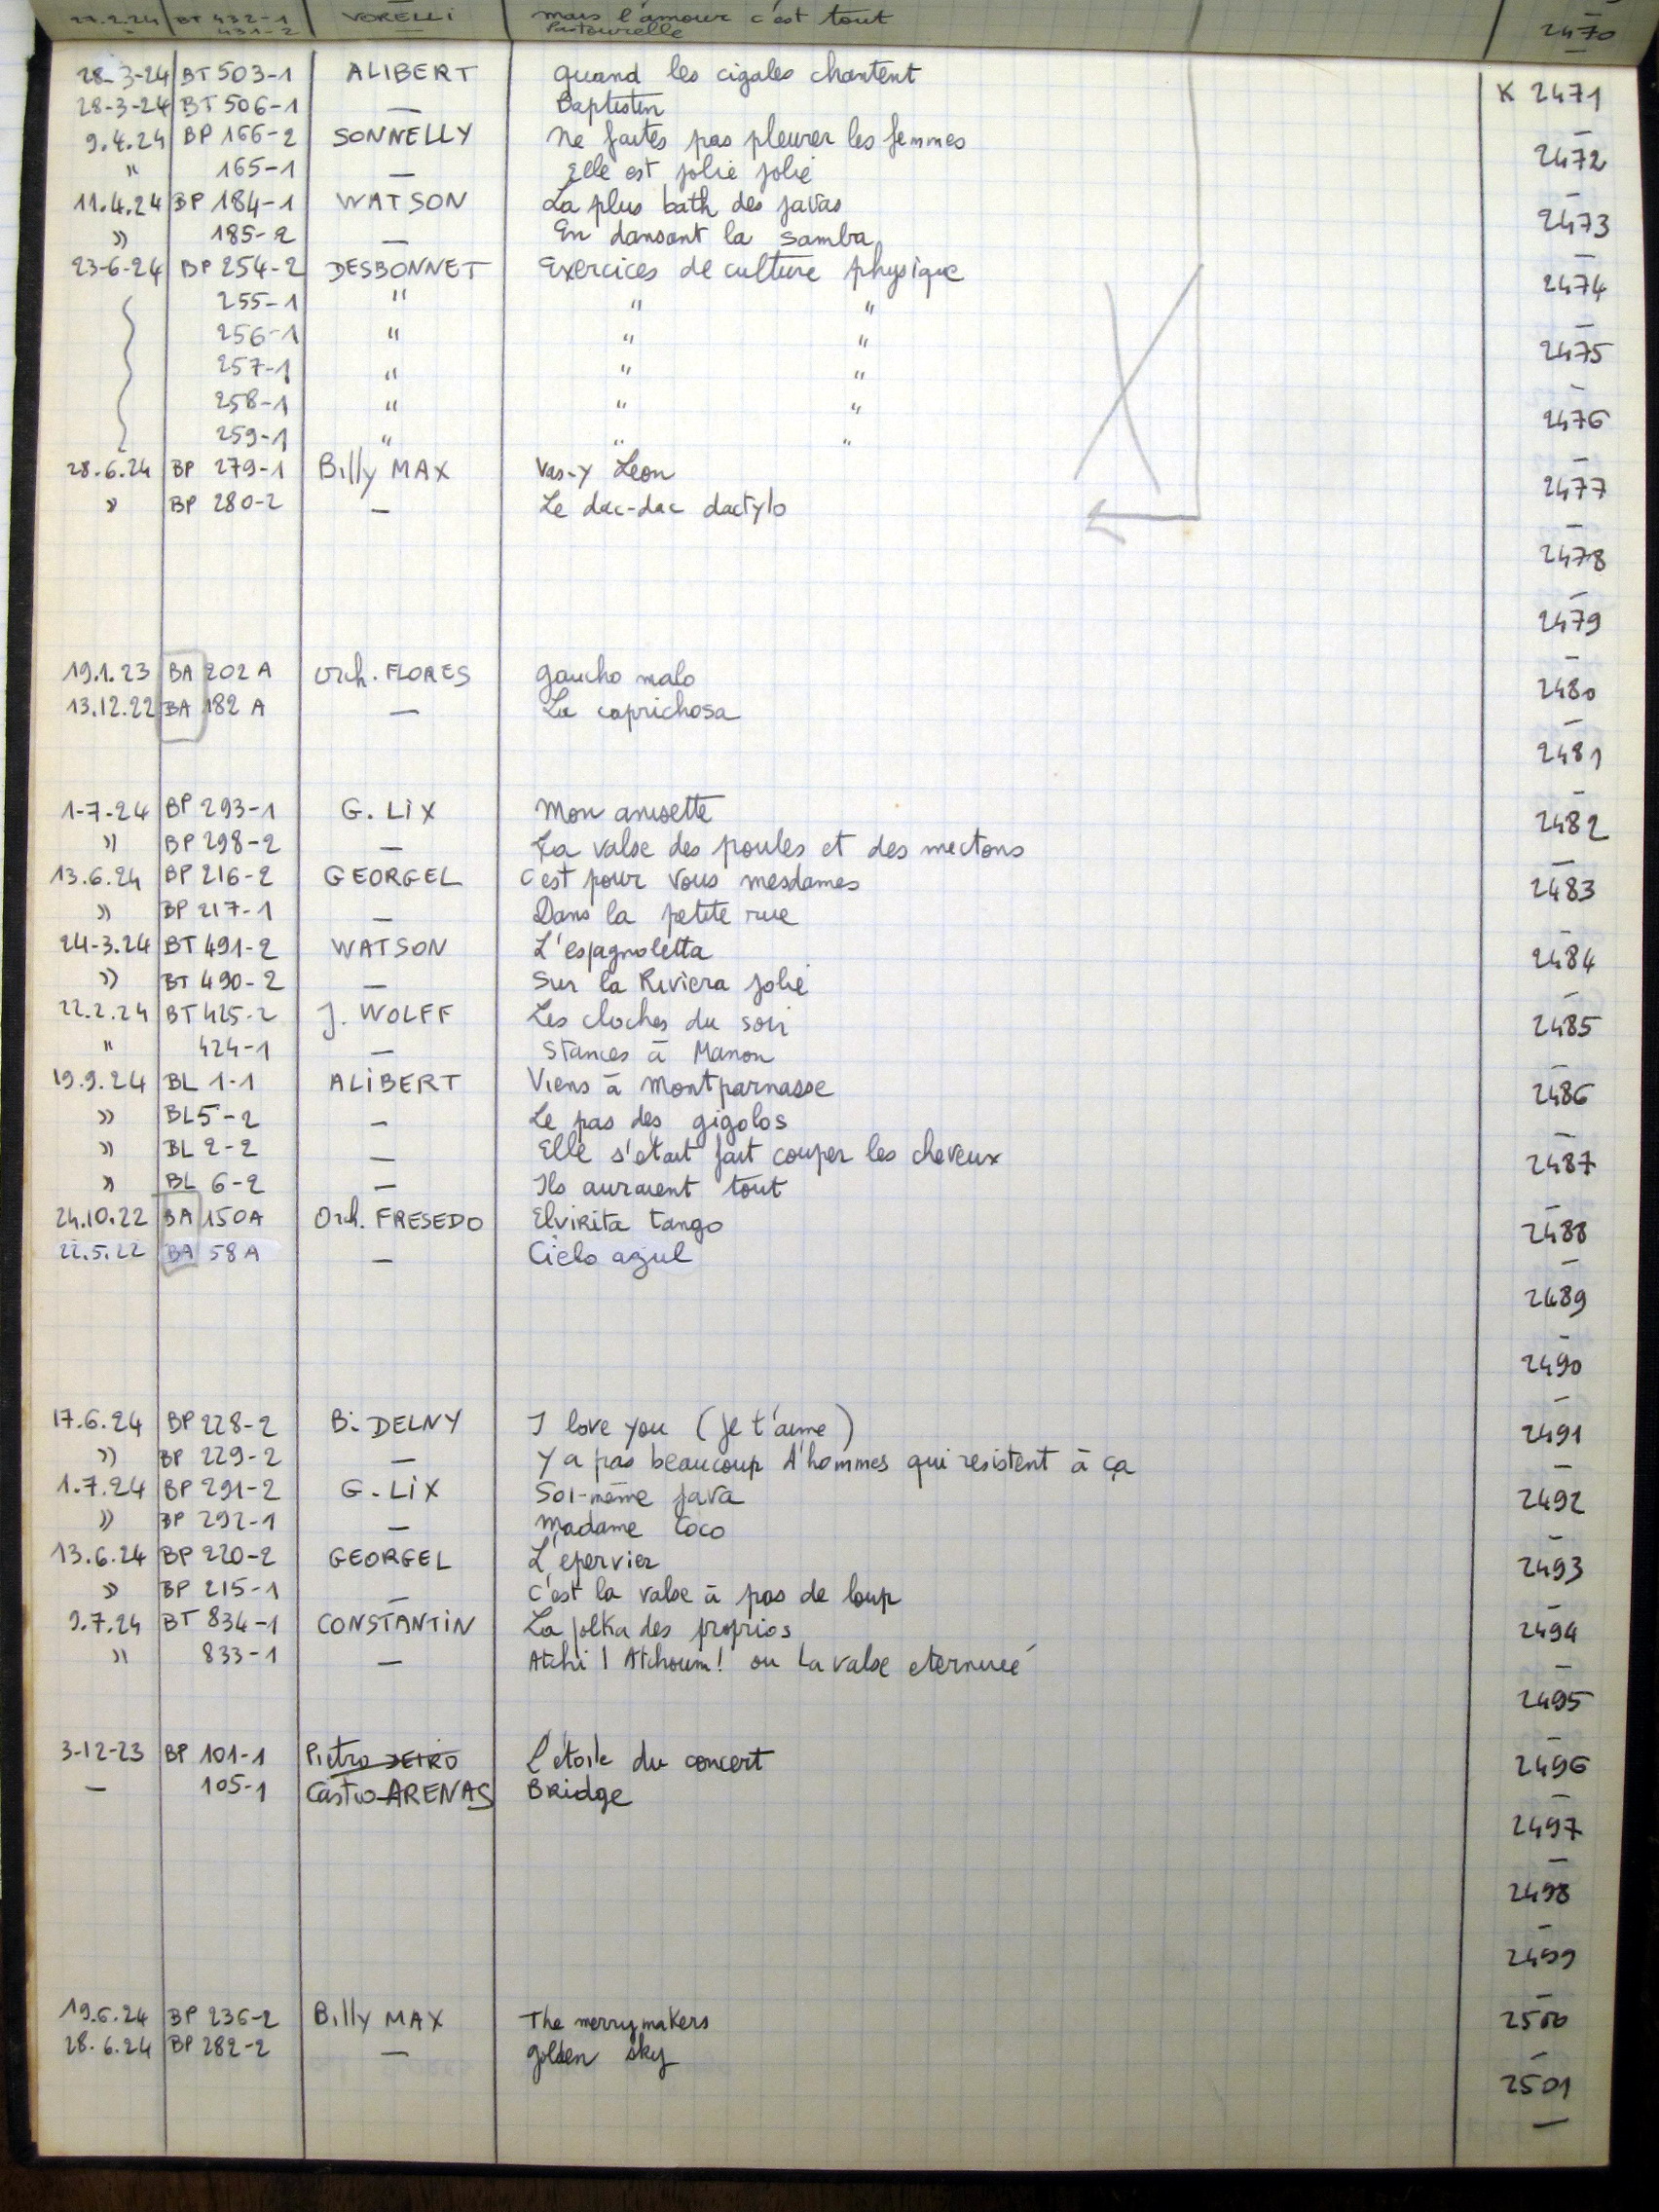 27.2.24 BT 432-1 VORELLI mais l'amour c'est tout
" 431-2 — Pastourelle 2470
28-3-24 BT 503-1 ALIBERT quand les cigales chantent K 2471
28-3-24 BT 506-1 — Baptistin —
9.4.24 BP 166-2 SONNELLY Ne faites pas pleurer les femmes 2472
" 165-1 — Elle est jolie jolie —
11.4.24 BP 184-1 WATSON La plus bath des javas 2473
» 185-2 — En dansant la samba —
23-6-24 BP 254-2 DESBONNET Exercices de culture physique 2474
255-1 " " " —
256-1 " " " 2475
257-1 " " " —
258-1 " " " 2476
259-1 " " " —
28.6.24 BP 279-1 Billy MAX Vas-y Leon 2477
» BP 280-2 — Le dac-dac dactylo —
2478
—
2479
—
19.1.23 BA 202 A Orch. FLORES gaucho malo 2480
13.12.22 BA 182 A — La caprichosa —
2481
—
1-7-24 BP 293-1 G. LIX Mon anisette 2482
» BP 298-2 — La valse des poules et des mectons —
13.6.24 BP 216-2 GEORGEL C'est pour vous mesdames 2483
» BP 217-1 — Dans la petite rue —
24-3.24 BT 491-2 WATSON L'espagnoletta 2484
» BT 490-2 — Sur la Riviera jolie —
22.2.24 BT 425-2 J. WOLFF Les cloches du soir 2485
" 424-1 — Stances à Manon —
19.9.24 BL 1-1 ALIBERT Viens à Montparnasse 2486
» BL 5-2 — Le pas des gigolos —
» BL 2-2 — Elle s'etait fait couper les cheveux 2487
» BL 6-2 — Ils auraient tout —
24.10.22 BA 150A Orch. FRESEDO Elvirita tango 2488
22.5.22 BA 58A — Cielo azul —
2489
—
2490
—
17.6.24 BP 228-2 B. DELNY I love you (je t'aime) 2491
» BP 229-2 — Y a pas beaucoup d'hommes qui resistent à ça —
1.7.24 BP 291-2 G. LIX Soi-même java 2492
» BP 292-1 — Madame Coco —
13.6.24 BP 220-2 GEORGEL L'epervier 2493
» BP 215-1 — C'est la valse à pas de loup —
9.7.24 BT 834-1 CONSTANTIN La polka des proprios 2494
» 833-1 — Atchi ! Atchoum! ou La valse eternuée —
2495
—
3-12-23 BP 101-1 Pietro DEIRO L'étoile du concert 2496
— 105-1 Castro-ARENAS Bridge —
2497
—
2498
—
2499
—
19.6.24 BP 236-2 Billy MAX The merrymakers 2500
28.6.24 BP 282-2 — golden sky —
2501
—